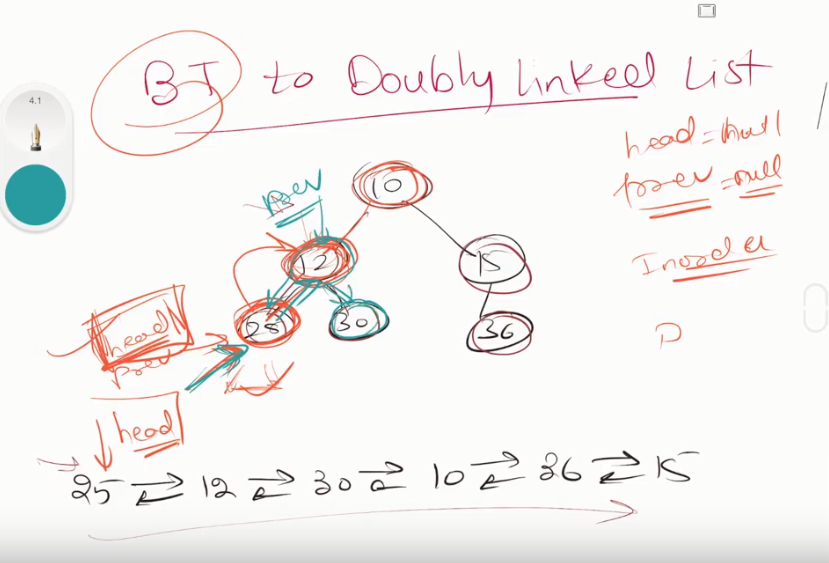 4.1
BT to Doubly linked List
head = null
prev = null
Inorder
prev
10
12
15
28
30
36
head
prev
head
P
25 ⇄ 12 ⇄ 30 ⇄ 10 ⇄ 36 ⇄ 15